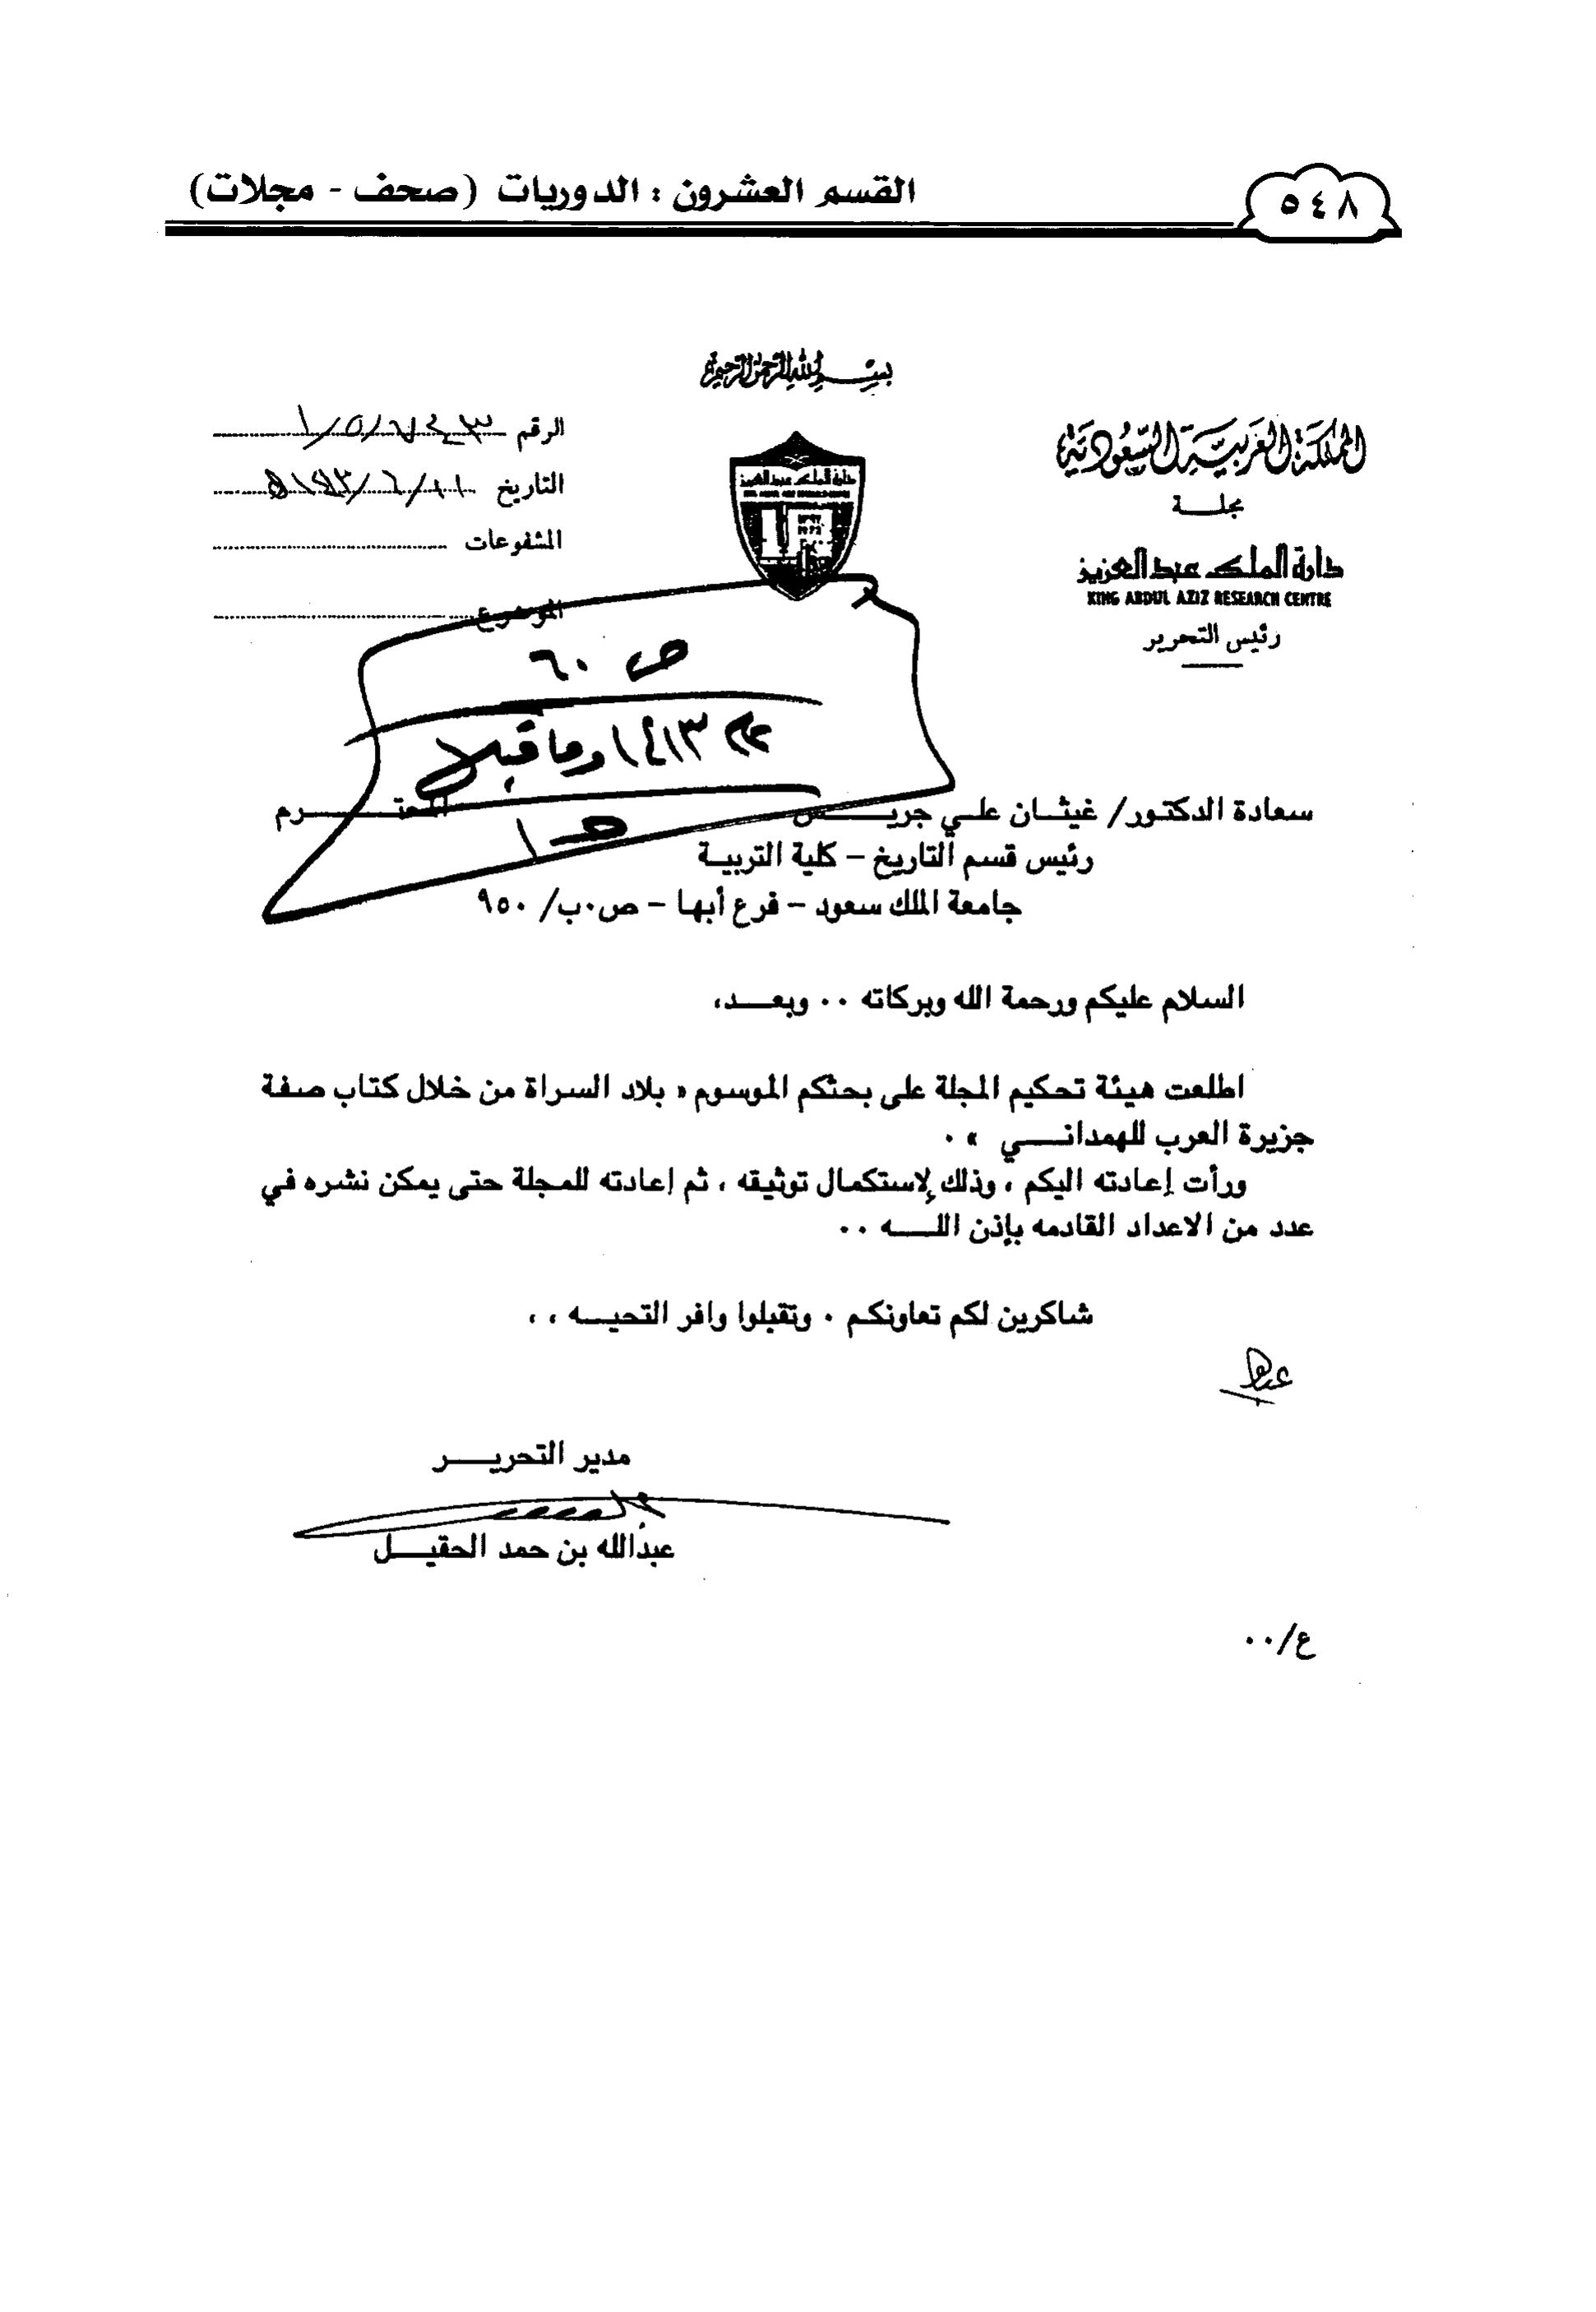 ٥٤٨
القسم العشرون : الدوريات (صحف - مجلات)
بسم الله الرحمن الرحيم
المملكة العربية السعودية
مجلـــة
دارة الملك عبد العزيز
KING ABDUL AZIZ RESEARCH CENTRE
رئيس التحرير
الرقم
التاريخ
المشفوعات
الموضوع
دارة الملك عبد العزيز
ص ٦٠
١٤١٣ وما قبلا
سعادة الدكتـور/ غيثـــان علـــي جريـــــس المحتـــــــرم
رئيس قسم التاريخ – كلية التربيـة
جامعة الملك سعود – فرع أبهـا – ص٠ب/ ٩٥٠
السلام عليكم ورحمة الله وبركاته ٠٠ وبعـــد،
اطلعت هيئة تحكيم المجلة على بحثكم الموسوم « بلاد السراة من خلال كتاب صفة
جزيرة العرب للهمدانــــي » ٠
ورأت إعادته اليكم ، وذلك لإستكمال توثيقه ، ثم إعادته للمجلة حتى يمكن نشره في
عدد من الاعداد القادمه بإذن اللـــــه ٠٠
شاكرين لكم تعاونكم ٠ وتقبلوا وافر التحيـــه ، ،
مدير التحريـــــر
عبدالله بن حمد الحقيـــل
ع/٠٠